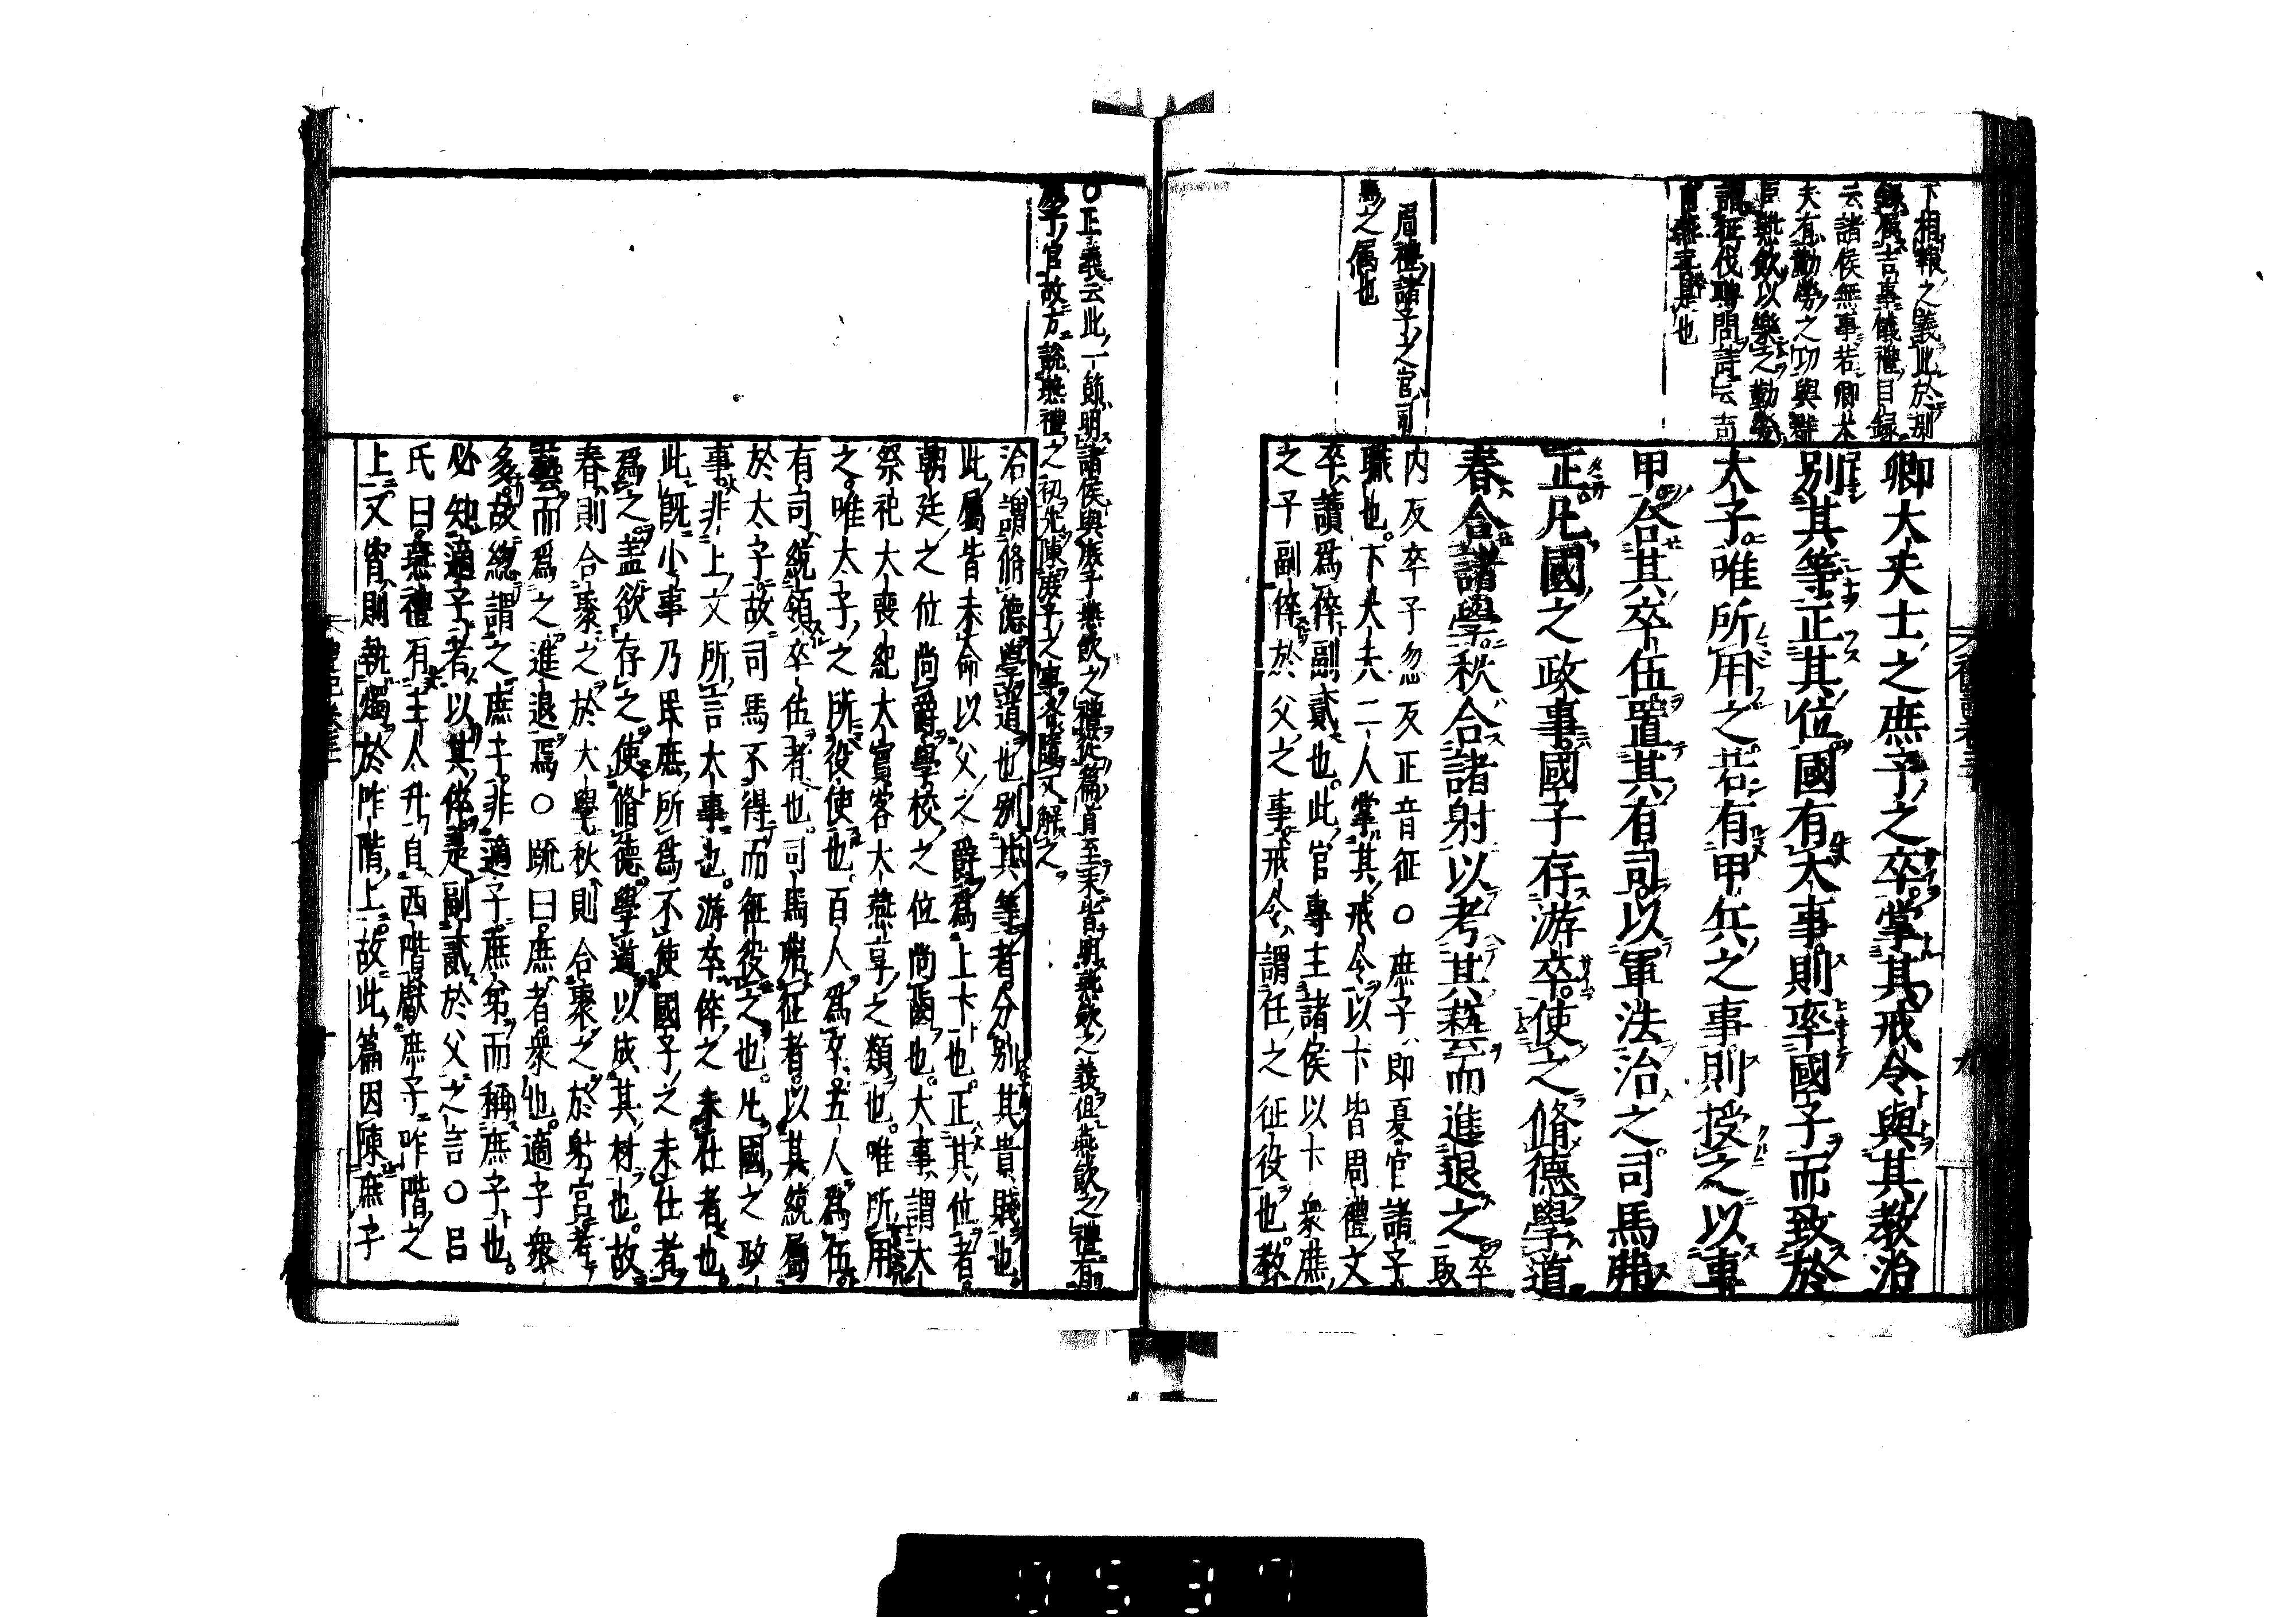 下相報之義此於別
錄屬吉事儀禮目録
云諸侯無事若卿大
夫有勤勞之功與群
臣燕飲以樂之勤勞
謂征伐聘問詩云吉
甫燕喜是也
卿大夫士之庶子之卒掌其戒令與其教治
別其等正其位國有大事則率國子而致於
太子唯所用之若有甲兵之事則授之以車
甲合其卒伍置其有司以軍法治之司馬弗
正凡國之政事國子存游卒使之脩德學道
春合諸學秋合諸射以考其藝而進退之 卒取
周禮諸子之官司
馬之属也
内反卒子忽反正音征○庶子即夏官諸子
職也。下大夫二人掌其戒令以下皆周禮文
卒讀爲倅副貳也。此官專主諸侯以下衆庶
之子副倅於父之事。戒令謂任之征役也。教
○正義云此一節明諸侯與族子燕飲之禮從篇首至末皆明燕飲之義但燕飲之禮有
庶子官故方說燕禮之初先陳庶子之事各隨文解之
治謂脩德學道也別其等者分別其貴賤也。
此屬皆未命以父之爵爲上下也。正其位者。
朝廷之位尚爵學校之位尚齒也。大事謂大
祭祀大喪紀大賓客大燕享之類也。唯所用
之。唯太子之所役使也。百人爲卒。五人爲伍。
有司統領卒伍者也。司馬弗征者。以其統屬
於太子故司馬不得而征役之也。凡國之政
事非上文所言大事也。游卒倅之未仕者也。
此既小事乃民庶所爲不使國子之未仕者
爲之盖欲存之使脩德學道以成其材也。故
春則合聚之於大學秋則合聚之於射宮考
藝而爲之進退焉。○疏曰庶者衆也。適子衆
多故總謂之庶子非適子庶弟而稱庶子也。
必知適子者以其倅是副貳於父之言○呂
氏曰燕禮有主人升自西階獻庶子阼階之
上又宵則執燭於阼階上。故此篇因陳庶子